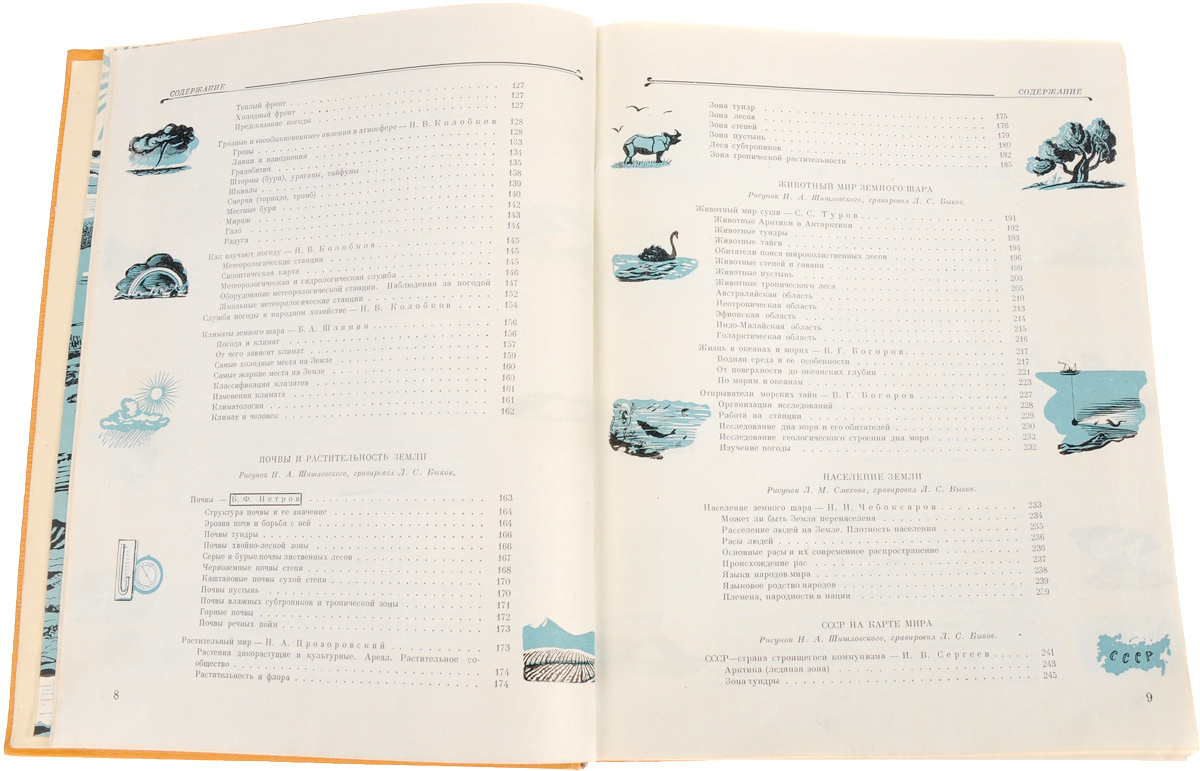 СОДЕРЖАНИЕ
Теплый фронт 127
Холодный фронт 127
Предсказание погоды 127
Грозные и «необыкновенные» явления в атмосфере — Н. В. Колобков 128
Грозы 128
Ливни и наводнения 133
Градобития 134
Штормы (бури), ураганы, тайфуны 135
Шквалы 138
Смерчи (торнадо, тромб) 139
Местные бури 140
Мираж 142
Гало 143
Радуга 144
Как изучают погоду — Н. В. Колобков 145
Метеорологические станции 145
Синоптическая карта 145
Метеорологическая и гидрологическая служба 146
Оборудование метеорологической станции. Наблюдения за погодой 147
Школьные метеорологические станции 152
Служба погоды в народном хозяйстве — Н. В. Колобков 154
Климаты земного шара — Б. А. Шлямин 156
Погода и климат 156
От чего зависит климат 157
Самые холодные места на Земле 159
Самые жаркие места на Земле 160
Классификация климатов 160
Изменения климата 161
Климатология 161
Климат и человек 162
ПОЧВЫ И РАСТИТЕЛЬНОСТЬ ЗЕМЛИ
Рисунок Н. А. Шишловского, гравировал Л. С. Быков.
Почвы — Б. Ф. Петров 163
Структура почвы и ее значение 164
Эрозия почв и борьба с ней 164
Почвы тундры 166
Почвы хвойно-лесной зоны 166
Серые и бурые почвы лиственных лесов 167
Черноземные почвы степи 168
Каштановые почвы сухой степи 170
Почвы пустынь 170
Почвы влажных субтропиков и тропической зоны 171
Горные почвы 172
Почвы речных пойм 173
Растительный мир — Н. А. Прозоровский 173
Растения дикорастущие и культурные. Ареал. Растительное со-
общество 174
Растительность и флора 174
8
СОДЕРЖАНИЕ
Зона тундр 175
Зона лесов 176
Зона степей 179
Зона пустынь 180
Леса субтропиков 182
Зона тропической растительности 185
ЖИВОТНЫЙ МИР ЗЕМНОГО ШАРА
Рисунок Н. А. Шишловского, гравировал Л. С. Быков.
Животный мир суши — С. С. Туров 191
Животные Арктики и Антарктики 192
Животные тундры 193
Животные тайги 194
Обитатели пояса широколиственных лесов 196
Животные степей и саванн 199
Животные пустынь 203
Животные тропического леса 205
Австралийская область 210
Неотропическая область 213
Эфиопская область 214
Индо-Малайская область 215
Голарктическая область 216
Жизнь в океанах и морях — В. Г. Богоров 217
Водная среда и ее особенности 217
От поверхности до океанских глубин 221
По морям и океанам 223
Открыватели морских тайн — В. Г. Богоров 227
Организация исследований 228
Работа на станции 229
Исследование дна моря и его обитателей 230
Исследование геологического строения дна моря 232
Изучение погоды 232
НАСЕЛЕНИЕ ЗЕМЛИ
Рисунок Л. М. Смехова, гравировал Л. С. Быков.
Население земного шара — Н. Н. Чебоксаров 233
Может ли быть Земля перенаселена 234
Расселение людей на Земле. Плотность населения 235
Расы людей 236
Основные расы и их современное распространение 236
Происхождение рас 237
Языки народов мира 238
Языковое родство народов 239
Племена, народности и нации 239
СССР НА КАРТЕ МИРА
Рисунок Н. А. Шишловского, гравировал Л. С. Быков.
СССР—страна строящегося коммунизма — И. В. Сергеев 241
Арктика (ледяная зона) 243
Зона тундры 245
СССР
9